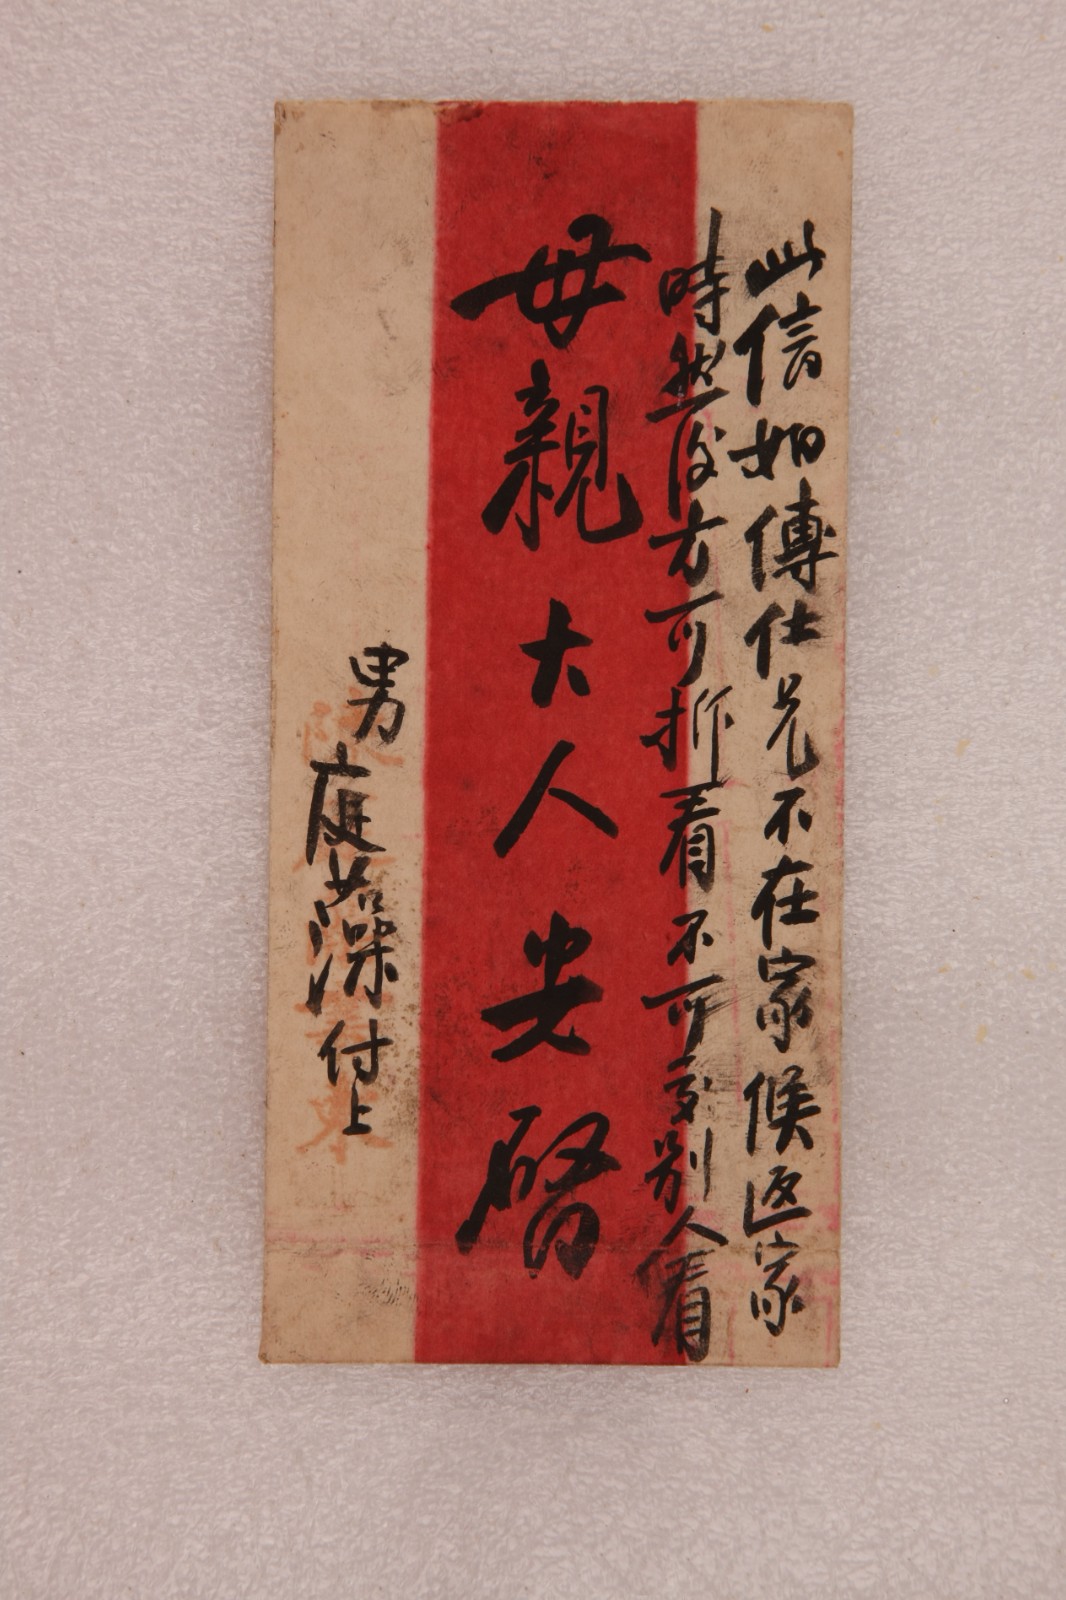 此信如傳仕兄不在家候返家
時然後方可拆看不可交別人看
母親大人安啓
男庭藻付上